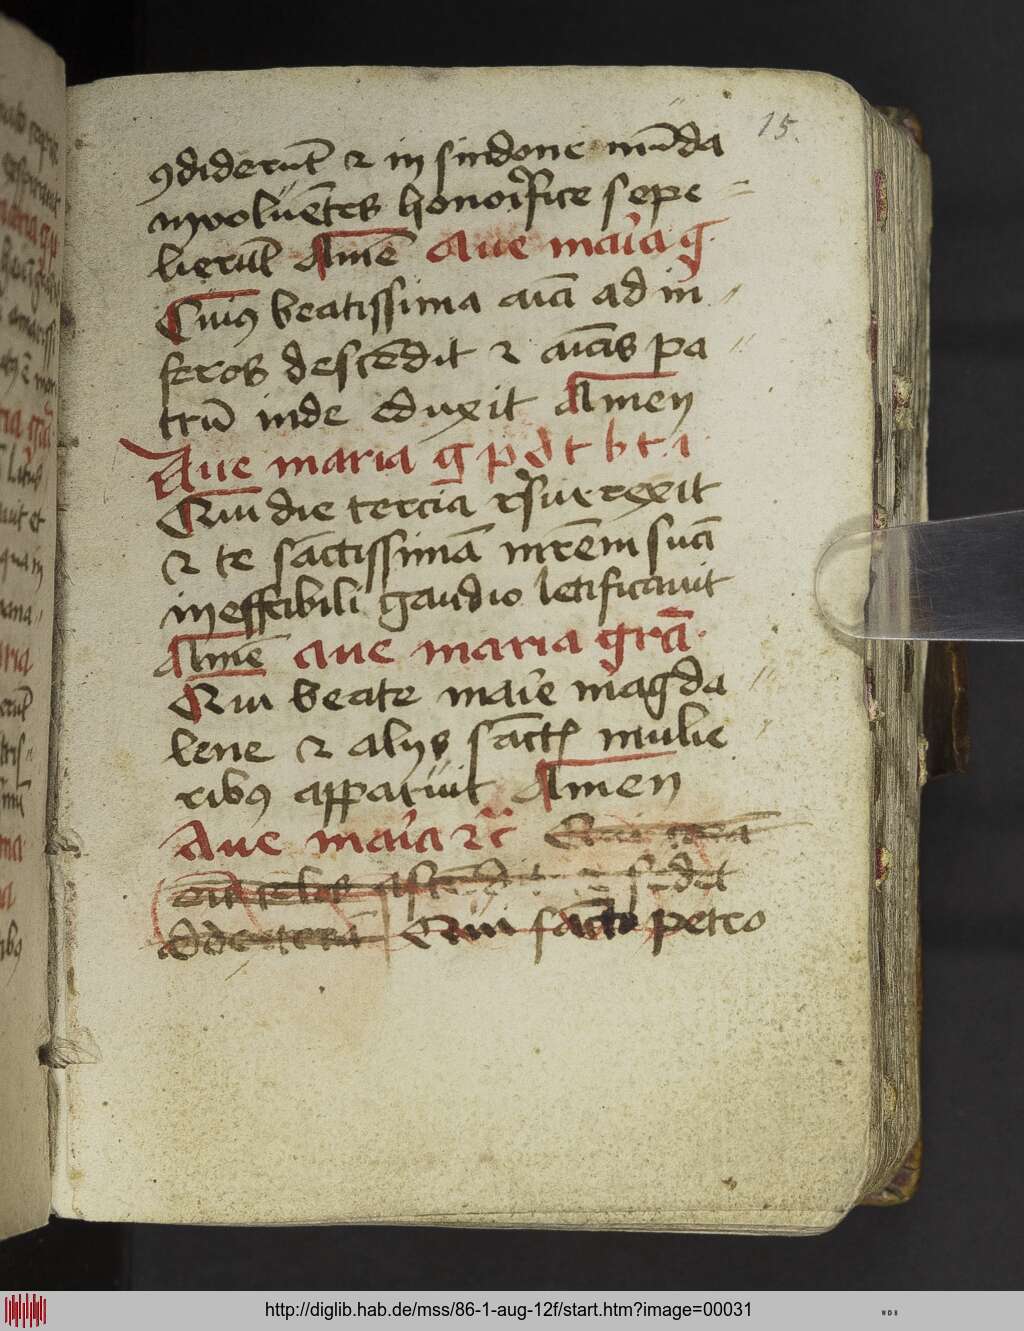 15.
ꝯdiderūt ⁊ in sindone mūda
inuoluētes honorifice sepe
lierūt Amē Aue maria g.
Cuiꝰ beatissima aīa ad in
feros descēdit ⁊ aīas pa
trū inde eduxit Amen
Aue maria g p d t b t i
Qui die tercia rsurrexit
⁊ te sāctissimā mrēm suā
ineffabili gaudio letificauit
Amē aue maria grā.
Qui beate marie magda
lene ⁊ alijs sāctꝭ mulie
ribꝰ apparuit Amen
Aue maria ⁊c
sedet
Qui sācto petro
http://diglib.hab.de/mss/86-1-aug-12f/start.htm?image=00031